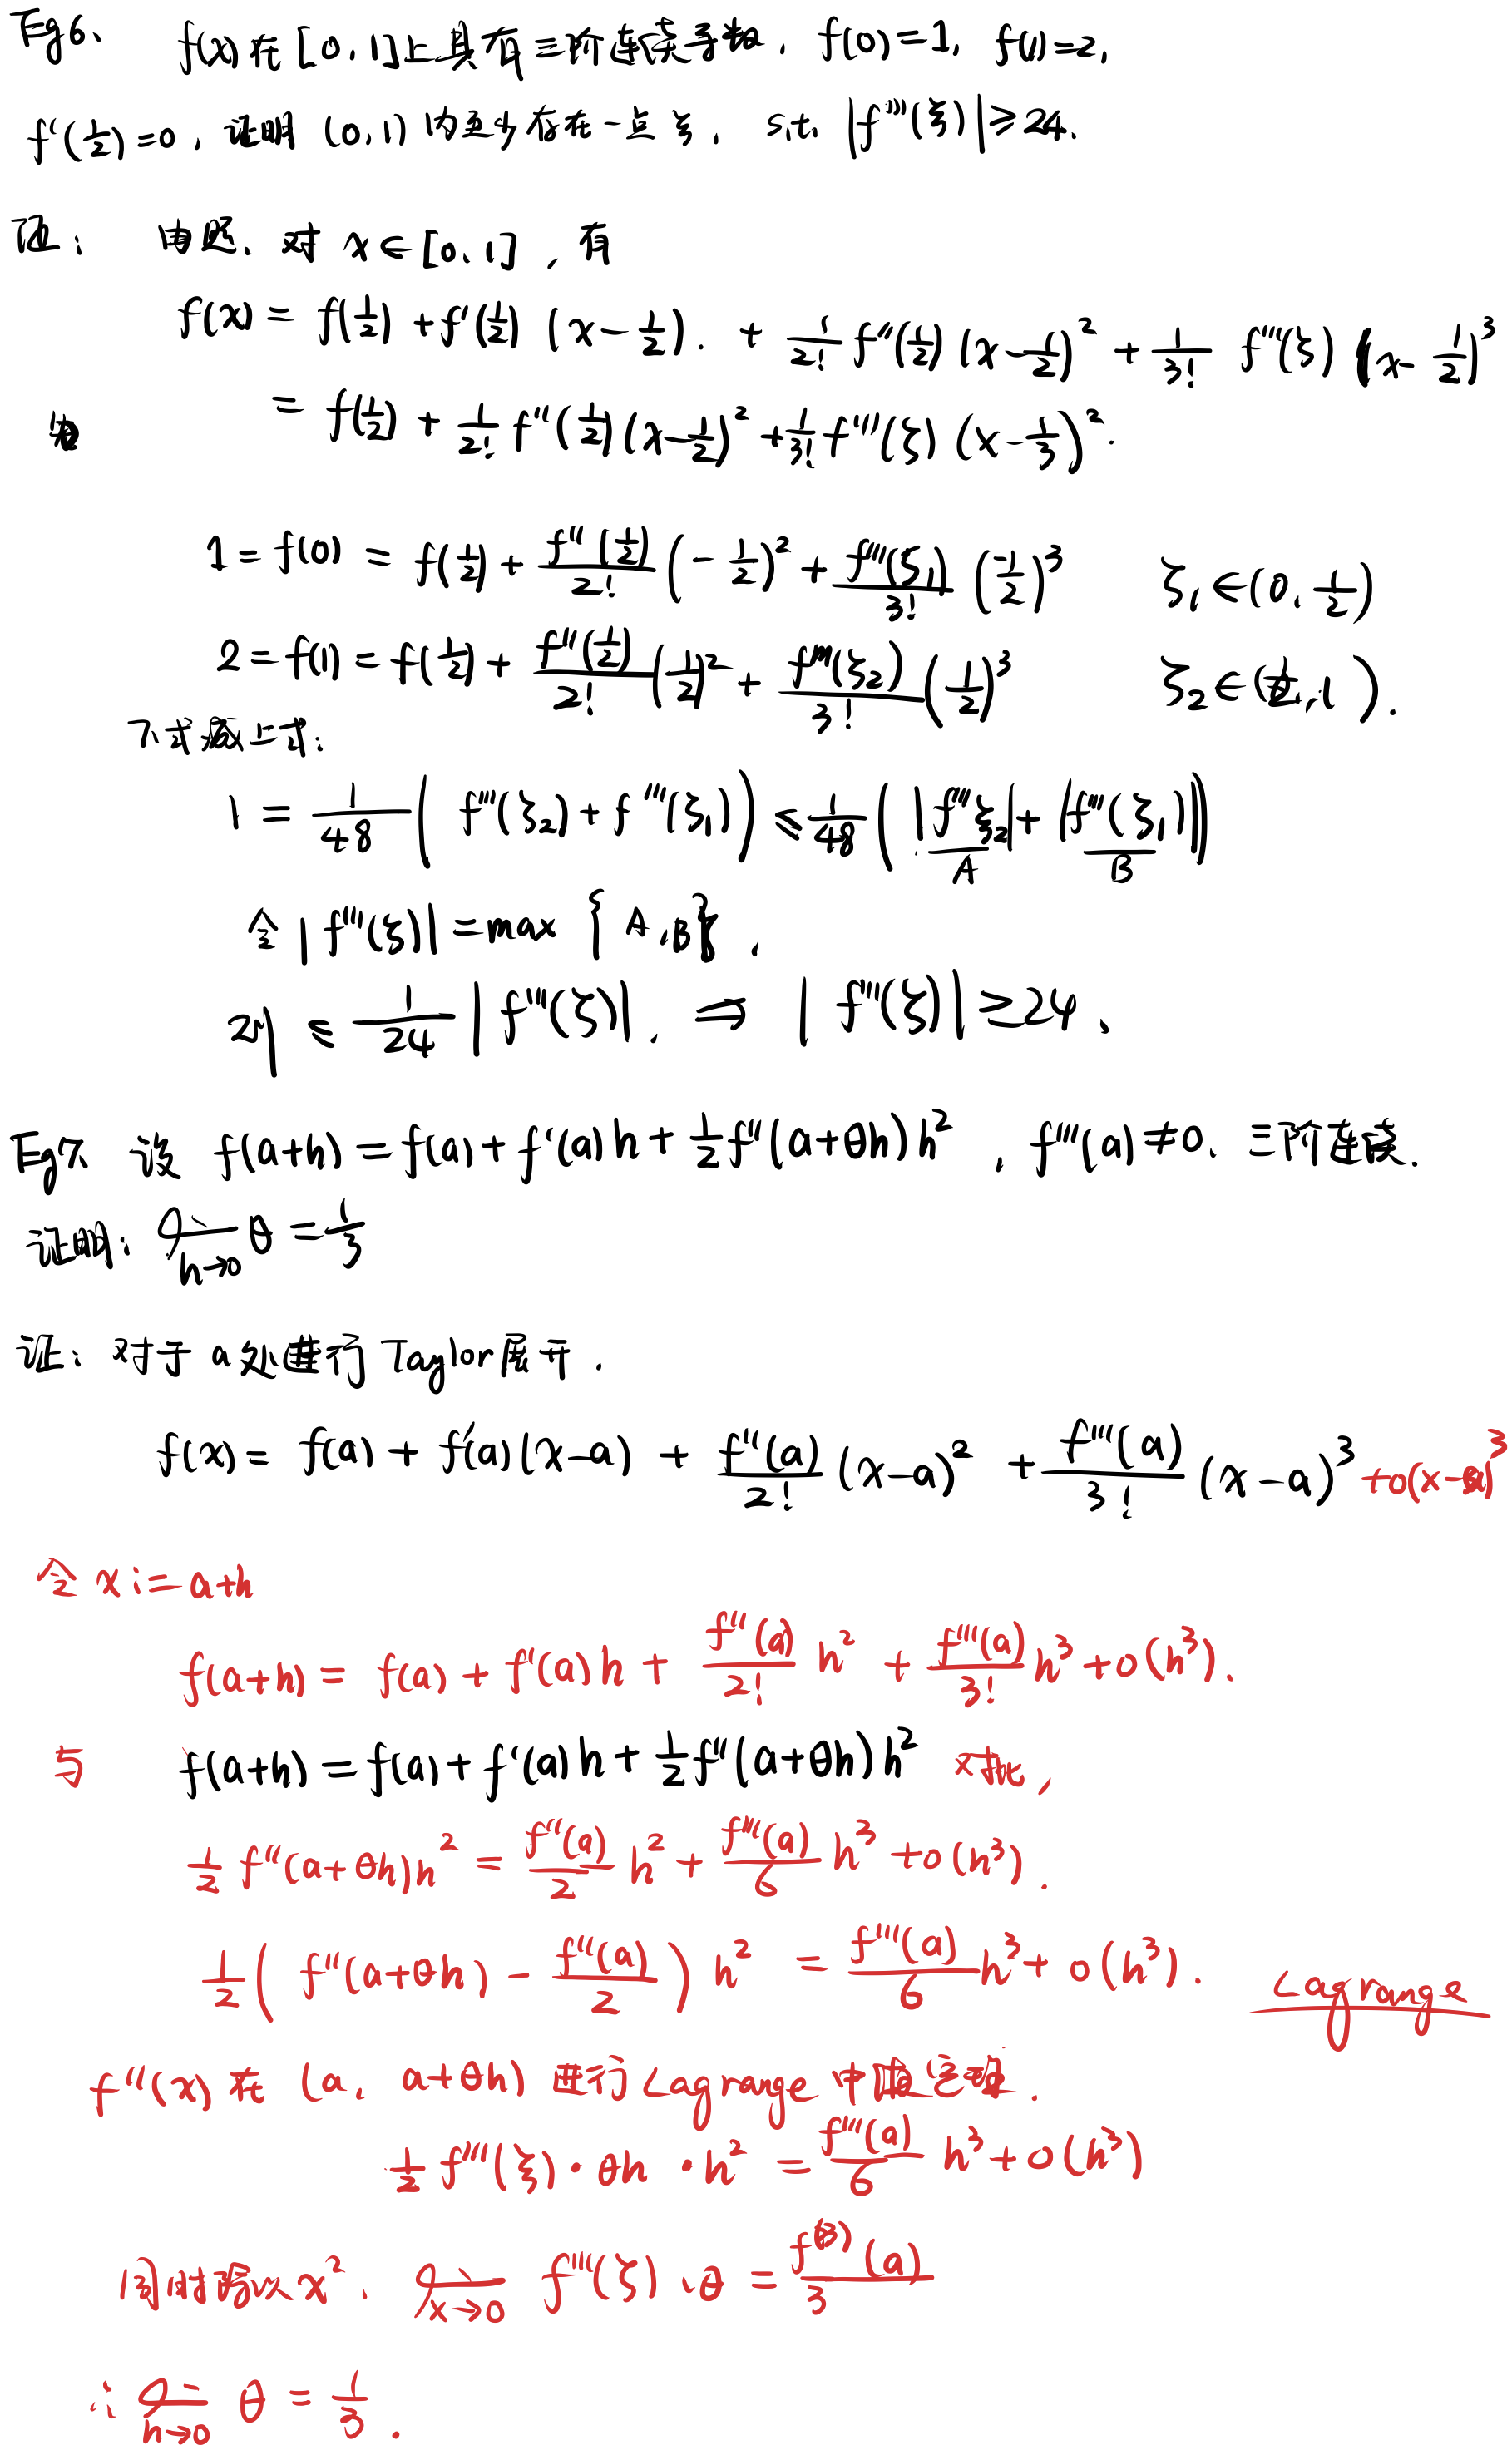 Eg6、 f(x)在[0,1]上具有三阶连续导数, f(0)=1, f(1)=2,
f'(1/2)=0, 证明 (0,1)内至少存在一点ξ, s,t, |f'''(ξ)|≥24.
证: 由题、对 x∈[0,1], 有
f(x) = f(1/2) + f'(1/2)(x-1/2). + 1/2! f''(1/2)(x-1/2)² + 1/3! f'''(ξ)(x-1/2)³
= f(1/2) + 1/2! f''(1/2)(x-1/2)² + 1/3! f'''(ξ)(x-1/3)².
1 = f(0) = f(1/2) + f''(1/2)/2! (-1/2)² + f'''(ξ₁)/3! (1/2)³ ξ₁∈(0,1/2)
2 = f(1) = f(1/2) + f''(1/2)/2! (1/2)² + f'''(ξ₂)/3! (1/2)³ ξ₂∈(1/2,1).
下式减上式:
1 = 1/48 (f'''(ξ₂) + f'''(ξ₁)) ≤ 1/48 (|f'''ξ₂| + |f'''(ξ₁)|)
A B
令 |f'''(ξ)| = max {A,B},
≤ 1/24 |f'''(ξ)|. ⇒ |f'''(ξ)| ≥ 24、
Eg7、 设 f(a+h) = f(a) + f'(a)h + 1/2 f''(a+θh)h², f'''(a)≠0、三阶连续.
证明: lim h→0 θ = 1/3
证: 对于a处进行Taylor展开.
f(x) = f(a) + f'(a)(x-a) + f''(a)/2! (x-a)² + f'''(a)/3! (x-a)³ + o(x-a)³
令 x:=a+h
f(a+h) = f(a) + f'(a)h + f''(a)/2! h² + f'''(a)/3! h³ + o(h³).
与 f(a+h) = f(a) + f'(a)h + 1/2 f''(a+θh)h² 对比,
1/2 f''(a+θh)h² = f''(a)/2 h² + f'''(a)/6 h³ + o(h³).
1/2 (f''(a+θh) - f''(a)/2) h² = f'''(a)/6 h³ + o(h³). Lagrange
f''(x)在(a, a+θh)进行Lagrange中值定理.
1/2 f'''(ξ)·θh·h² = f'''(a)/6 h³ + o(h³)
同时除以x². lim x→0 f'''(ξ)·θ = f⁽³⁾(a)/3
∴ lim h→0 θ = 1/3.